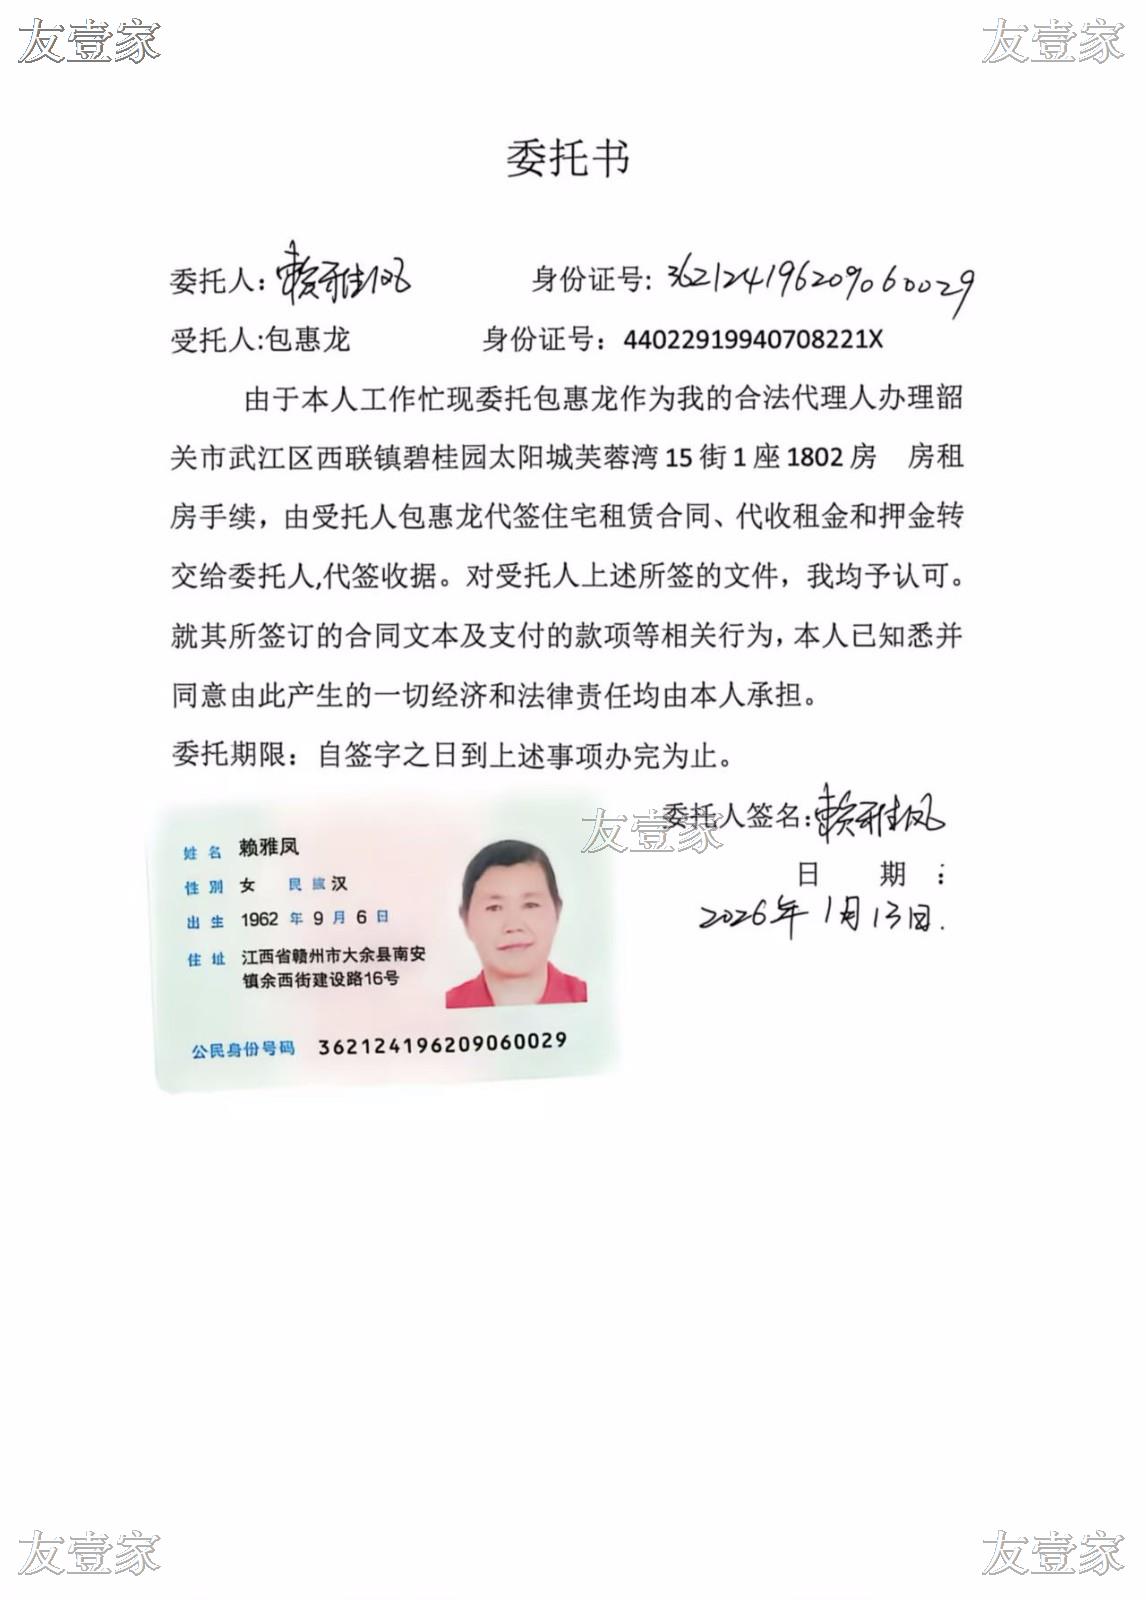 友壹家 友壹家
委托书
委托人：赖雅凤 身份证号：362124196209060029
受托人:包惠龙 身份证号：44022919940708221X
由于本人工作忙现委托包惠龙作为我的合法代理人办理韶
关市武江区西联镇碧桂园太阳城芙蓉湾 15 街 1 座 1802 房 房租
房手续，由受托人包惠龙代签住宅租赁合同、代收租金和押金转
交给委托人,代签收据。对受托人上述所签的文件，我均予认可。
就其所签订的合同文本及支付的款项等相关行为，本人已知悉并
同意由此产生的一切经济和法律责任均由本人承担。
委托期限：自签字之日到上述事项办完为止。
友壹家
委托人签名：赖雅凤
日 期 ：
2026年1月13日.
姓名 赖雅凤
性别 女 民族 汉
出生 1962 年 9 月 6 日
住址 江西省赣州市大余县南安
镇余西街建设路16号
公民身份号码 362124196209060029
友壹家 友壹家